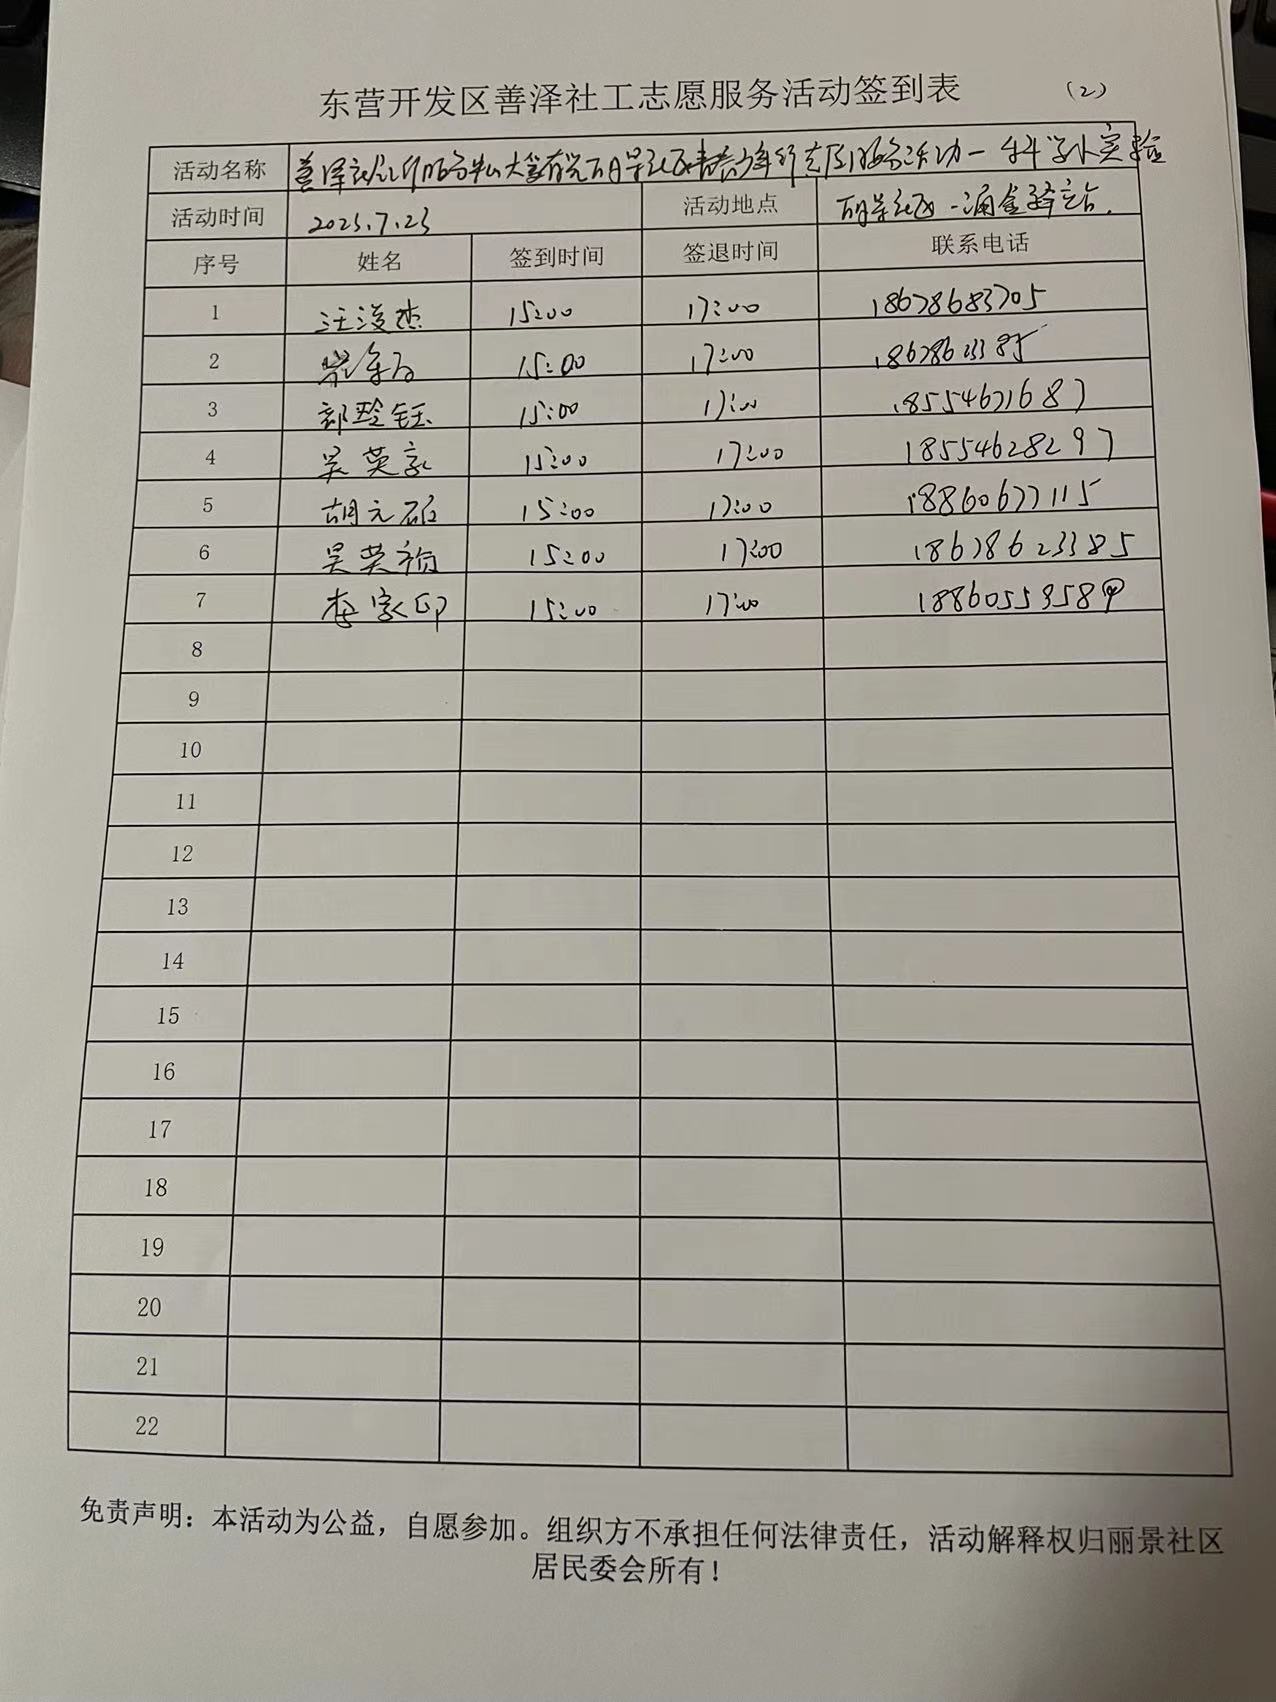 东营开发区善泽社工志愿服务活动签到表 (2)
活动名称 善泽 服务 大 社区青少年 服务活动—科学小实验
活动时间 2025.7.23 活动地点 社区
序号 姓名 签到时间 签退时间 联系电话
1 汪浚杰 15:00 17:00 18678683705
2 15:00 17:00 18678623385
3 15:00 17:00 18554671687
4 吴英 15:00 17:00 18554628297
5 胡元 15:00 17:00 18860677115
6 吴英 15:00 17:00 18678623385
7 李家印 15:00 17:00
8
9
10
11
12
13
14
15
16
17
18
19
20
21
22
免责声明：本活动为公益，自愿参加。组织方不承担任何法律责任，活动解释权归丽景社区
居民委会所有！